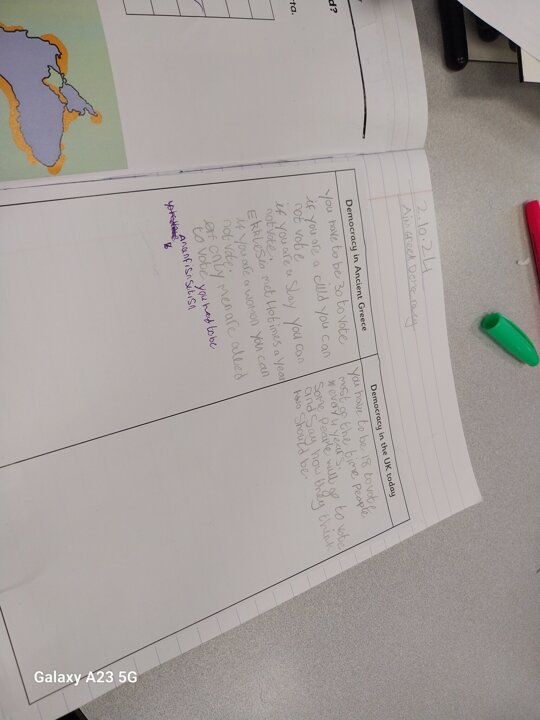 d?
ta.
2.10.24
Democracy in Ancient Greece
You have to be 30 to vote
if you are a cilld you can
not vote
if you are a slay you can
not vote.
met 40 times a year
if you are a women you can
not vote.
only men are allled
to vote you had to be
Democracy in the UK today
You have to be 18 to vote
most of the time people
vote 4 years.
Some people will go to vote
and say how they think
should be.
Galaxy A23 5G